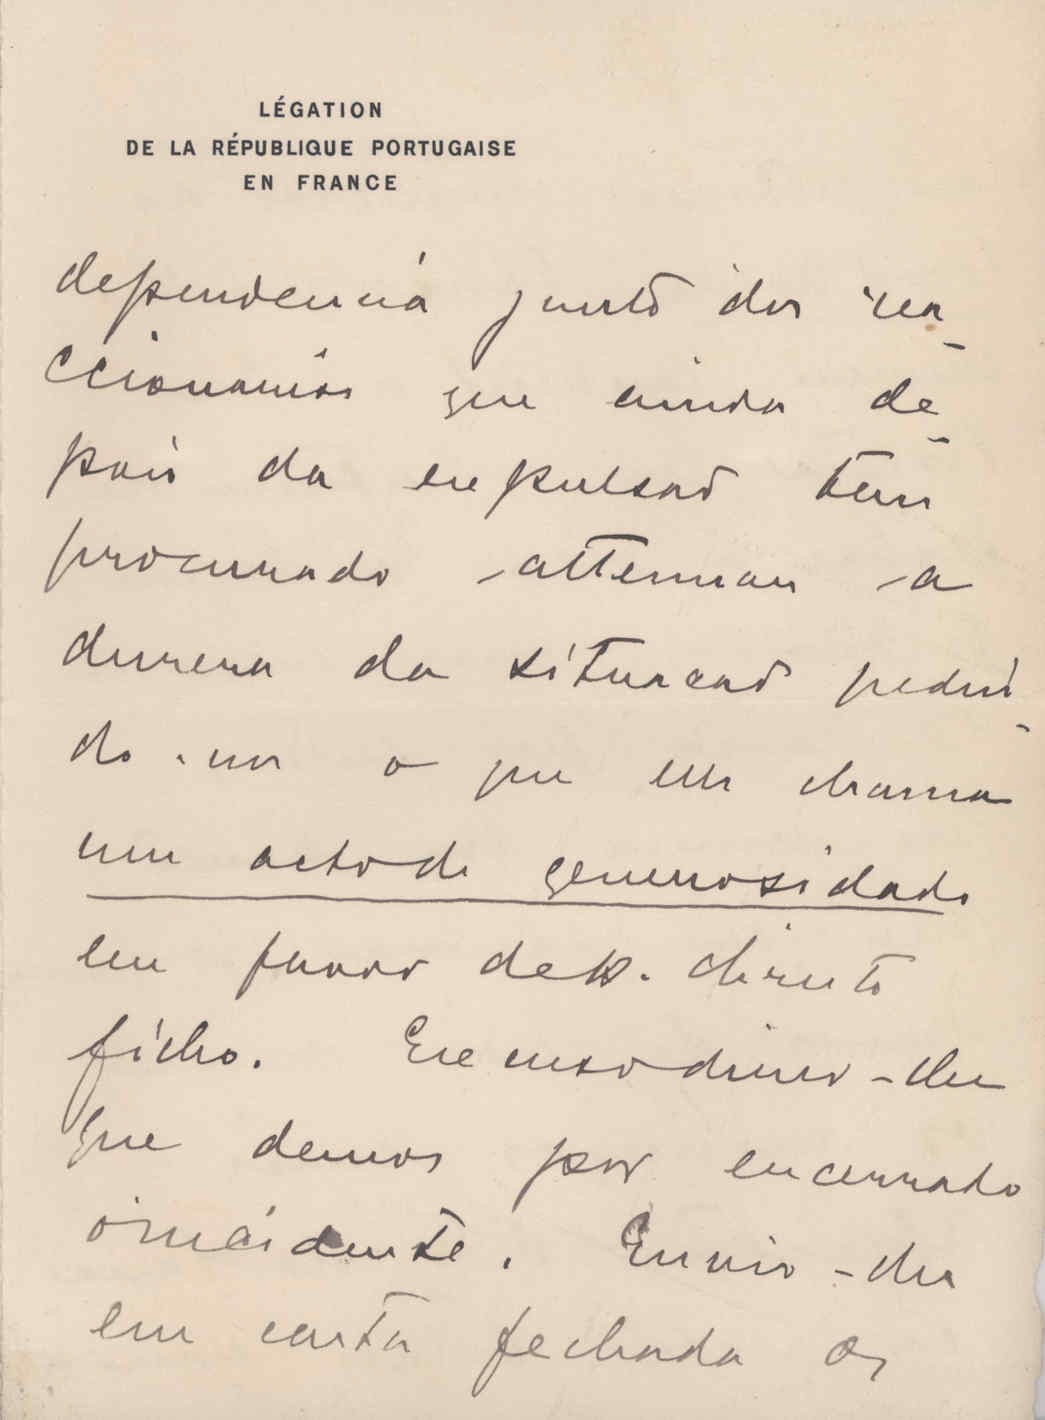 LÉGATION
DE LA RÉPUBLIQUE PORTUGAISE
EN FRANCE
dependencia junto dos rea-
ccionarios que ainda de-
pois da expulsaõ tem
procurado attenuar a
dureza da situacaõ pedin-
do-nos o que elles chama
um acto de generosidade
em favor de
ficho. Excuso dizer-lhe
que demos por encerrado
o incidente. Envio-lhe
em carta fechada os